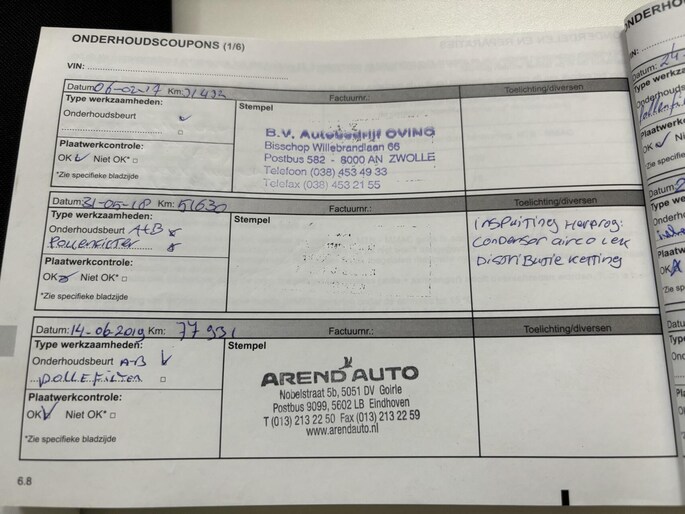 ONDERHOUDSCOUPONS (1/6)
VIN:
Datum: 06-02-17 Km: 31432 Factuurnr.: Toelichting/diversen
Type werkzaamheden: Stempel
Onderhoudsbeurt
B.V. Autobedrijf OVING
Bisschop Willebrandlaan 66
Postbus 582 - 8000 AN ZWOLLE
Telefoon (038) 453 49 33
Telefax (038) 453 21 55
Plaatwerkcontrole:
OK Niet OK*
*Zie specifieke bladzijde
Datum: 31-05-18 Km: 51630 Factuurnr.: Toelichting/diversen
Type werkzaamheden: Stempel
Onderhoudsbeurt A+B
Pollenfilter
inspuiting herprog:
Condensor airco lek
Distributie ketting
Plaatwerkcontrole:
OK Niet OK*
*Zie specifieke bladzijde
Datum: 14-06-2019 Km: 77931 Factuurnr.: Toelichting/diversen
Type werkzaamheden: Stempel
Onderhoudsbeurt A-B
POLLEFILTER
AREND AUTO
Nobelstraat 5b, 5051 DV Goirle
Postbus 9099, 5602 LB Eindhoven
T (013) 213 22 50 Fax (013) 213 22 59
www.arendauto.nl
Plaatwerkcontrole:
OK Niet OK*
*Zie specifieke bladzijde
6.8